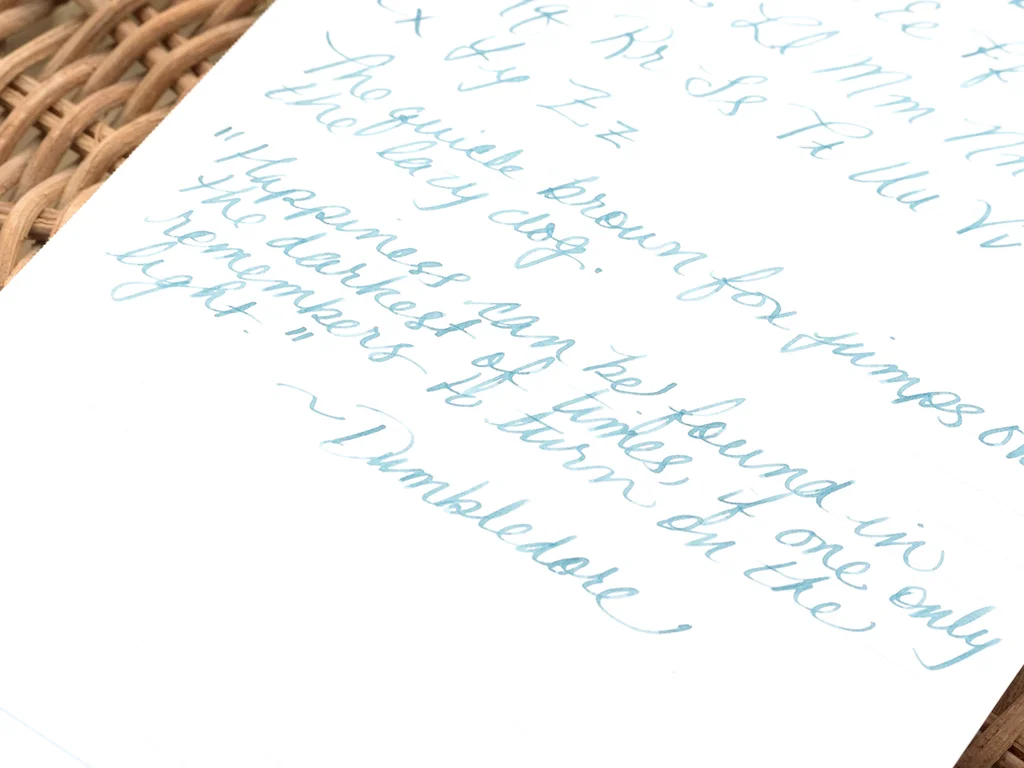 Ee Ff
Ll Mm Nn
Qq Rr Ss Tt Uu Vv
x Yy Zz
The quick brown fox jumps
the lazy dog.
"Happiness can be found in
the darkest of times, if one only
remembers to turn on the
light."
~Dumbledore